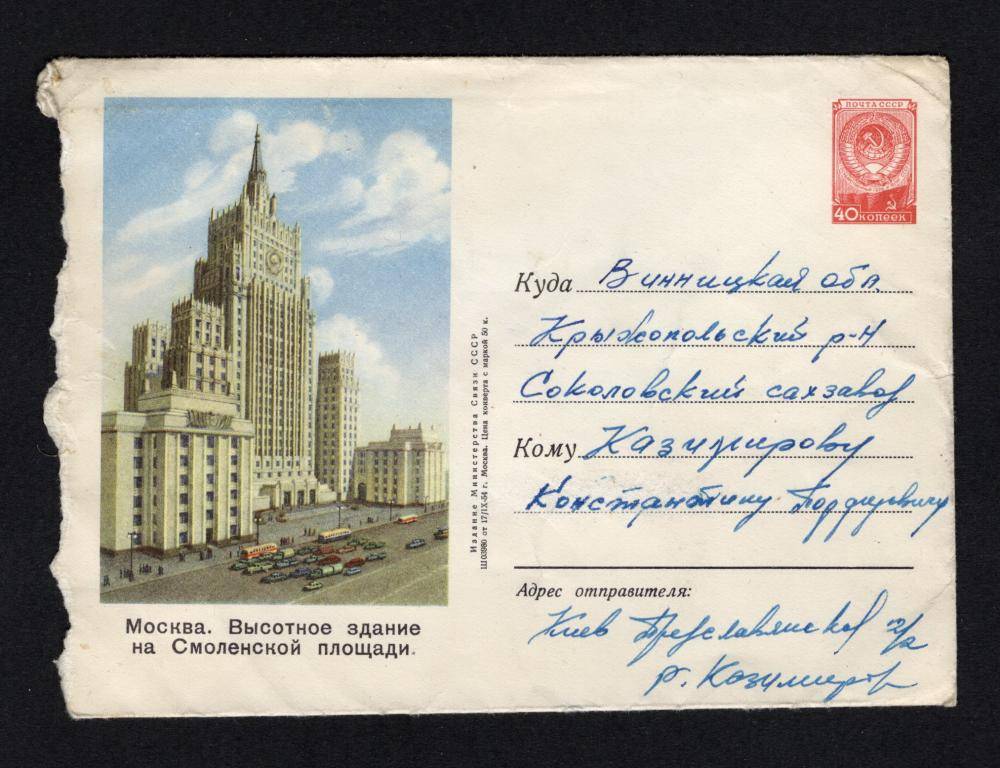 ПОЧТА СССР
40 КОПЕЕК
Куда Винницкая обл.
Крыжопольский р-н
Соколовский сахзавод
Кому Казимирову
Константину Порфирьевичу
Адрес отправителя:
Киев
Казимиров
Издание Министерства Связи СССР
Ш03980 от 17/IX-54 г. Москва. Цена конверта с маркой 50 к.
Москва. Высотное здание
на Смоленской площади.